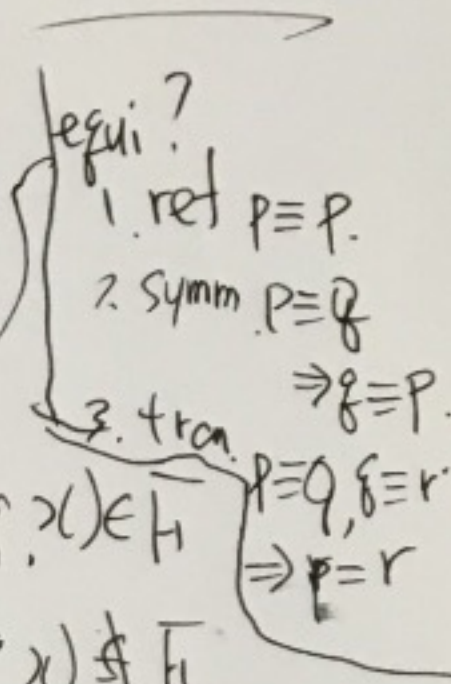 equi?
1. ref p≡p.
2. symm. p≡q
⇒q≡p.
3. tran. p≡q, q≡r
, x)∈F₁
⇒p=r
x)∉F₁